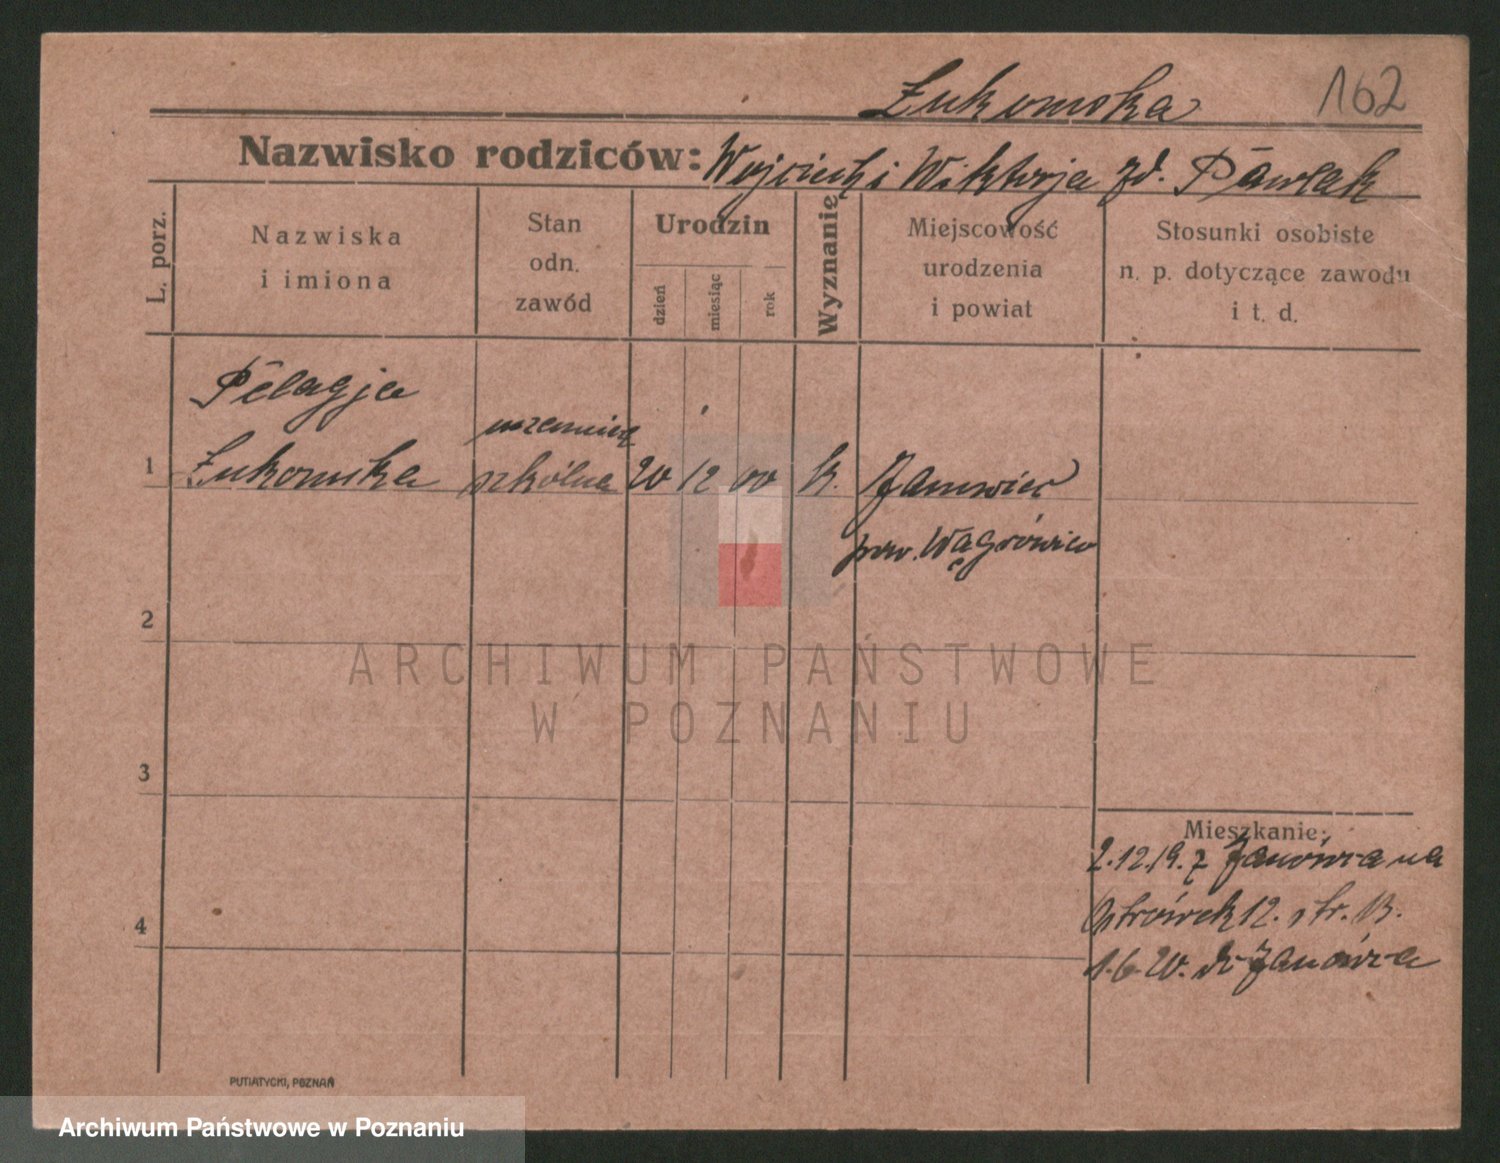 Łukomska
162
Nazwisko rodziców: Wojciech i Wiktorja zd. Pawlak
L. porz.
Nazwiska
i imiona
Stan
odn.
zawód
Urodzin
dzień
miesiąc
rok
Wyznanie
Miejscowość
urodzenia
i powiat
Stosunki osobiste
n. p. dotyczące zawodu
i t. d.
Pelagja
uczennica
1 Łukomska szkólna 20 12 00 k. Janowiec
pow. Wągrówiec
2
ARCHIWUM PAŃSTWOWE
W POZNANIU
3
Mieszkanie:
2.12.19. z Janówca na
4
Ostrówek 12. str. B.
1.6.20. do Janówca
PUTIATYCKI, POZNAŃ
Archiwum Państwowe w Poznaniu